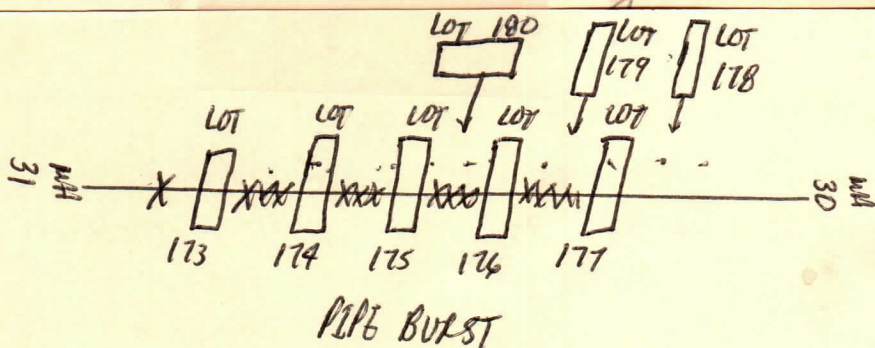 LOT 180
LOT 179
LOT 178
LOT LOT LOT LOT LOT
MH 31
X XXX XXX XXX XXX
MH 30
173 174 175 176 177
PIPE BURST